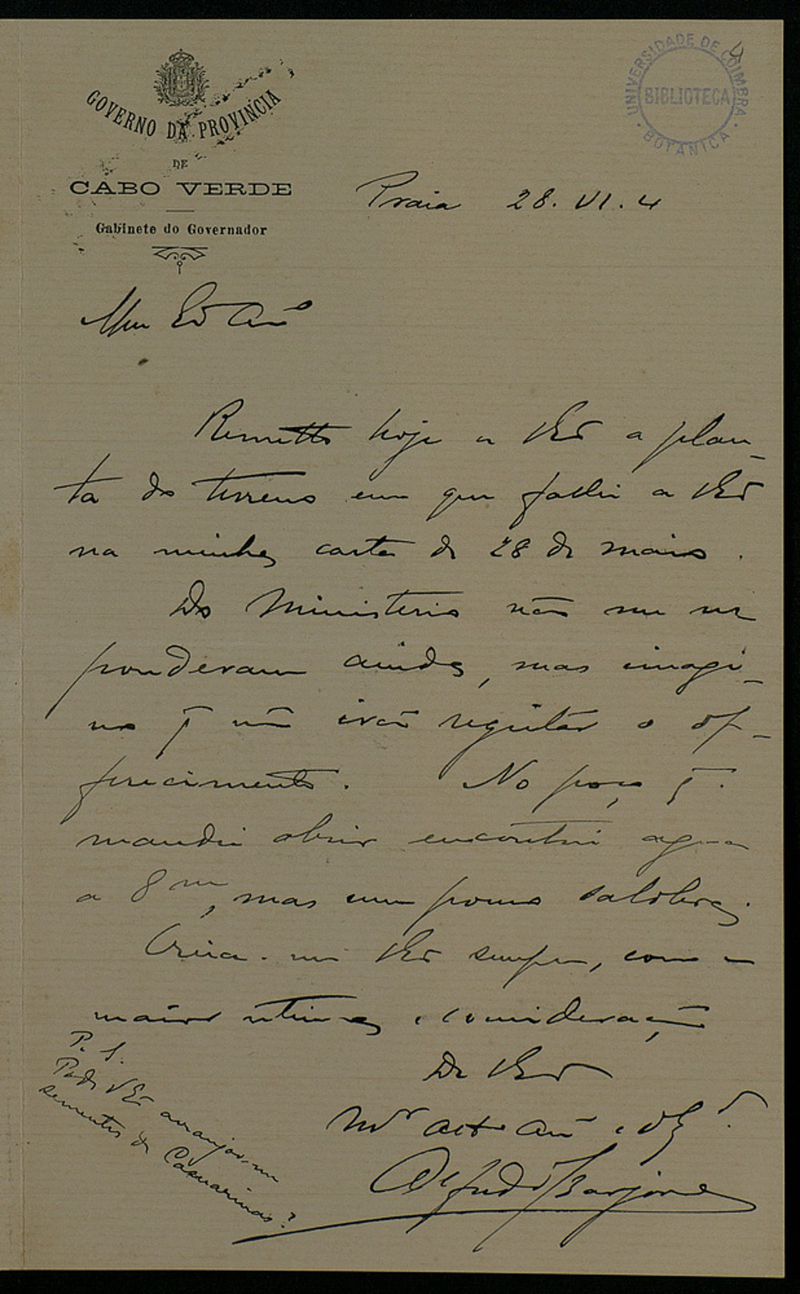 4
UNIVERSIDADE DE COIMBRA
BIBLIOTECA
BOTANICA
GOVERNO DA PROVINCIA
DE
CABO VERDE
Gabinete do Governador
Praia 28. VI. 4
Meu Exº Amº
Remetto hoje a VExª a plan-
ta do terreno em que fallei a VExª
na minha carta de 28 de maio.
Do Ministerio não me res
ponderam ainda, mas imagi-
no q̃ não irão regeitar o of-
ferecimento. No poço q̃
mandei abrir encontrei agua
a 8m, mas um pouco salobra.
Creia-me VExª sempre, com a
maior estima e consideração
De VExª
Alfredo Barjona
P. S.
Pode VExª arranjar-me
sementes de Casuarinas?